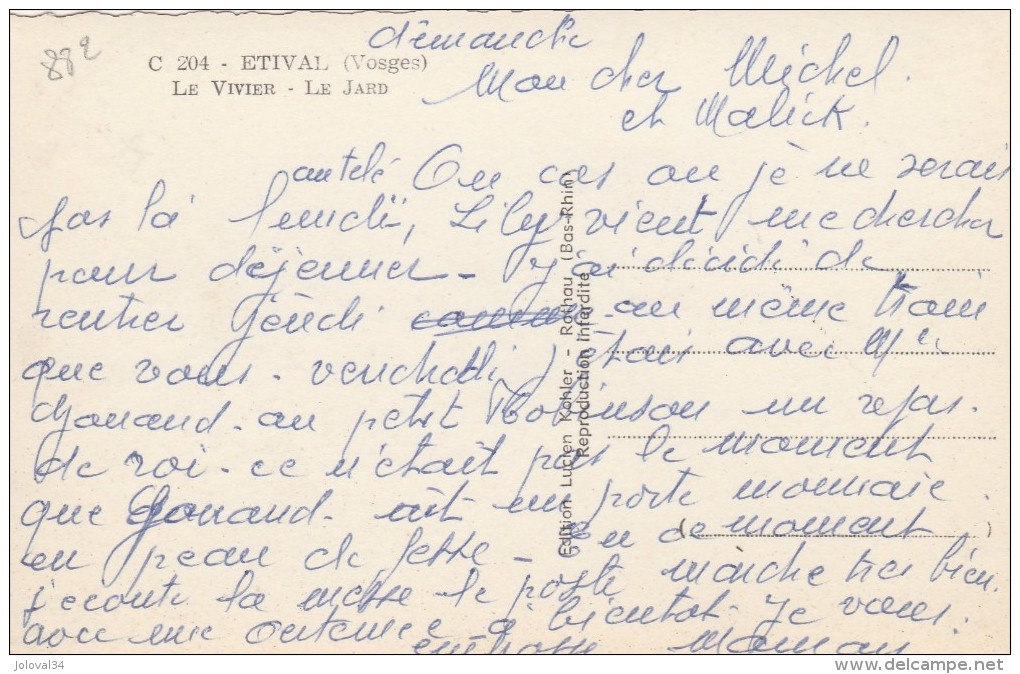 882
C 204 - ETIVAL (Vosges)
LE VIVIER - LE JARD
dimanche
Mon cher Michel.
et Malick.
au télé On cas ou je ne serais
pas là lundi, Lily vient me chercher
pour déjeuner - j'ai décidé de
rentrer jeudi au même train
que vous - vendredi j'étais avec Mr
Gouraud - au petit Robinson un repas.
de roi - ce n'était pas le moment
que Gouraud - ait un porte monnaie.
en peau de fesse - En ce moment
j'écoute la messe le poste marche tres bien.
avec une antenne a bientot - Je vous.
embrasse Maman
Edition Lucien Kohler - Rothau (Bas-Rhin)
Reproduction interdite
joloval34
www.delcampe.net